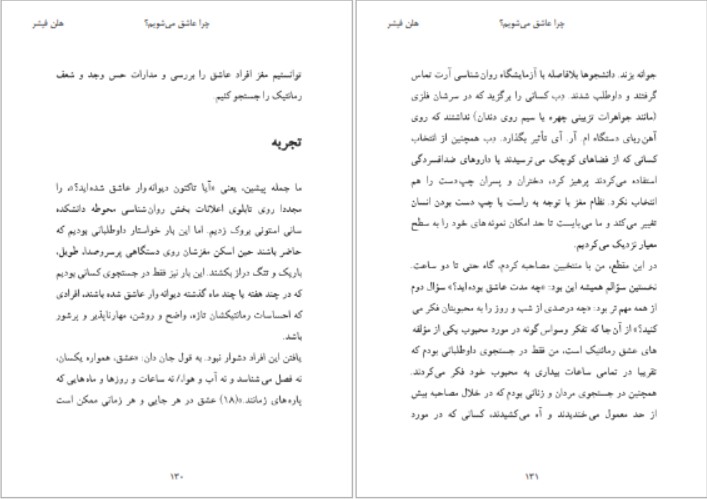 چرا عاشق می‌شویم؟
هلن فیشر
توانستیم مغز افراد عاشق را بررسی و مدارات حس وجد و شعف
رمانتیک را جستجو کنیم.
تجربه
ما جمله پیشین، یعنی «آیا تاکنون دیوانه‌وار عاشق شده‌اید؟»، را
مجددا روی تابلوی اعلانات بخش روان‌شناسی محوطه دانشکده
سانی استونی بروک زدیم. اما این بار خواستار داوطلبانی بودیم که
حاضر باشند حین اسکن مغزشان روی دستگاهی پرسروصدا، طویل،
باریک و تنگ دراز بکشند. این بار نیز فقط در جستجوی کسانی بودیم
که در چند هفته یا چند ماه گذشته دیوانه وار عاشق شده باشند، افرادی
که احساسات رمانتیکشان تازه، واضح و روشن، مهارناپذیر و پرشور
باشد.
یافتن این افراد دشوار نبود. به قول جان دان: «عشق، همواره یکسان،
نه فصل می شناسد و نه آب و هوا،/ نه ساعات و روزها و ماه‌هایی که
پاره‌های زمانند.»(۱۸) عشق در هر جایی و هر زمانی ممکن است
۱۳۰
چرا عاشق می‌شویم؟
هلن فیشر
جوانه بزند. دانشجوها بلافاصله با آزمایشگاه روان‌شناسی آرت تماس
گرفتند و داوطلب شدند. دِب کسانی را برگزید که در سرشان فلزی
(مانند جواهرات تزیینی چهره یا سیم روی دندان) نداشتند که روی
آهن‌ربای دستگاه ام. آر. آی تأثیر بگذارد. دِب همچنین از انتخاب
کسانی که از فضاهای کوچک می ترسیدند یا داروهای ضدافسردگی
استفاده می‌کردند پرهیز کرد، دختران و پسران چپ‌دست را هم
انتخاب نکرد. نظام مغز با توجه به راست یا چپ دست بودن انسان
تغییر می‌کند و ما می‌بایست تا حد امکان نمونه های خود را به سطح
معیار نزدیک می‌کردیم.
در این مقطع، من با منتخبین مصاحبه کردم، گاه حتی تا دو ساعت.
نخستین سؤالم همیشه این بود: «چه مدت عاشق بوده‌اید؟» سؤال دوم
از همه مهم تر بود: «چه درصدی از شب و روز را به محبوبتان فکر می
کنید؟» از آن جا که تفکر وسواس گونه در مورد محبوب یکی از مؤلفه
های عشق رمانتیک است، من فقط در جستجوی داوطلبانی بودم که
تقریبا در تمامی ساعات بیداری به محبوب خود فکر می‌کردند.
همچنین در جستجوی مردان و زنانی بودم که در خلال مصاحبه بیش
از حد معمول می خندیدند و آه می‌کشیدند، کسانی که در مورد
۱۳۱